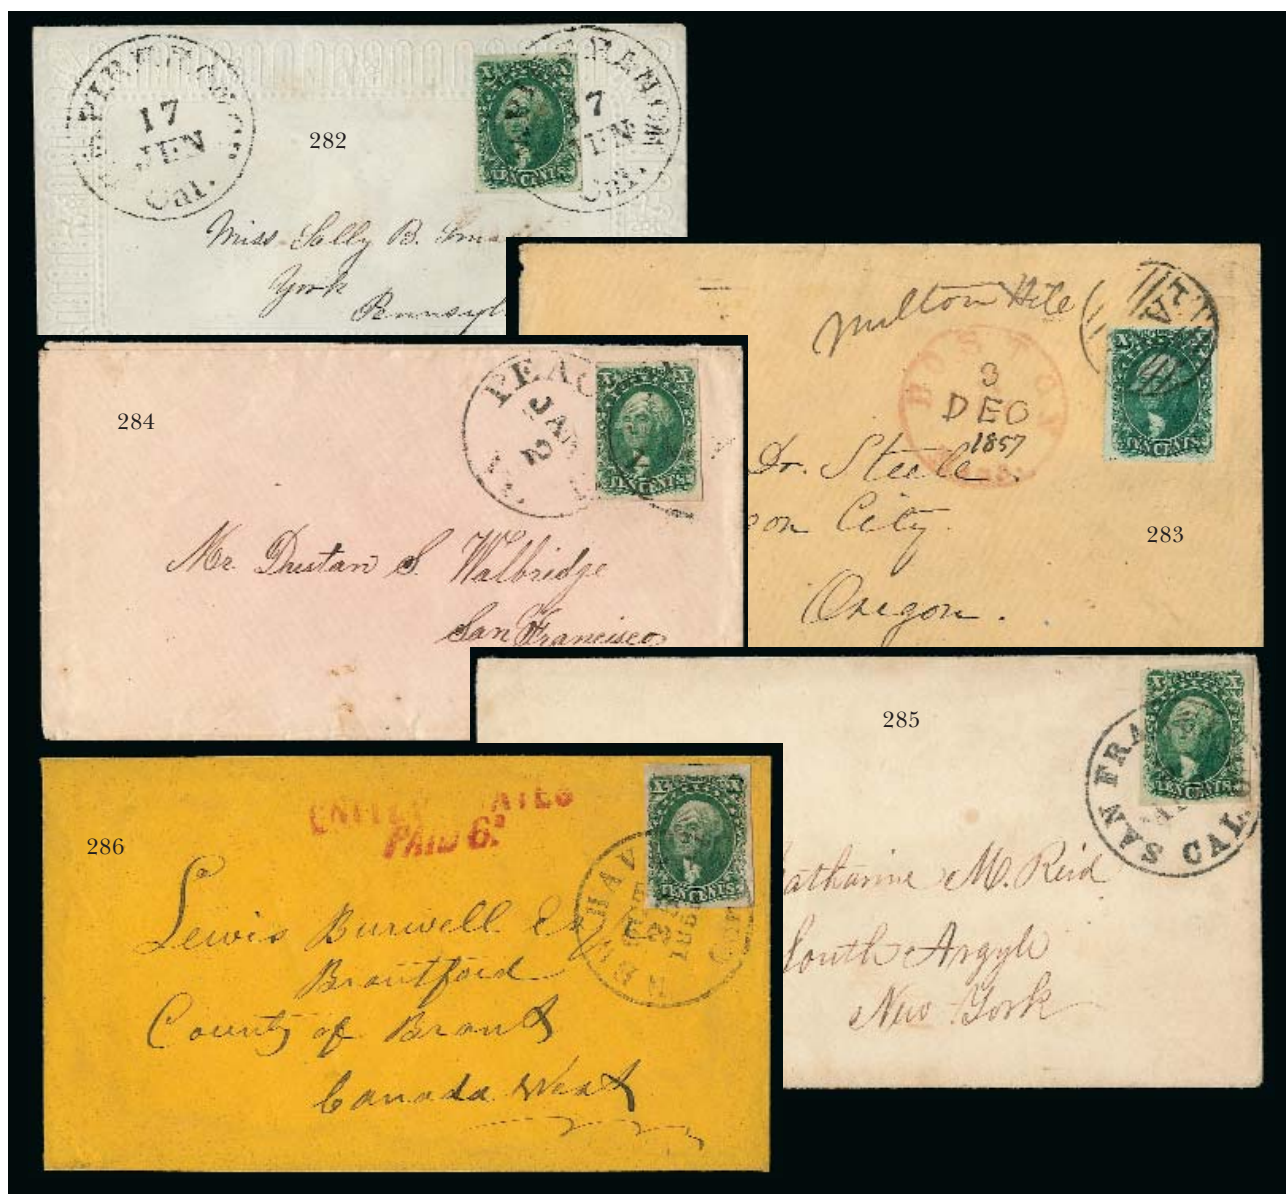 17
JUN
Cal.
282
17
JUN
Cal.
TEN CENTS
Miss Sally B.
York
Pennsyl
Milton Hite
BOSTON
3
DEC
1857
TEN CENTS
Dr. Steele
on City
Oregon.
283
284
PEAC
JAN
2
X X
TEN CENTS
Mr. Dustan S. Walbridge
San Francisco
285
X X
TEN CENTS
SAN FRA
CAL
atharine M. Reid
South Argyle
New York
286
UNITED STATES
PAID 6d
X X
TEN CENTS
Lewis Burwell Esq
Brantford
County of Brant
Canada West